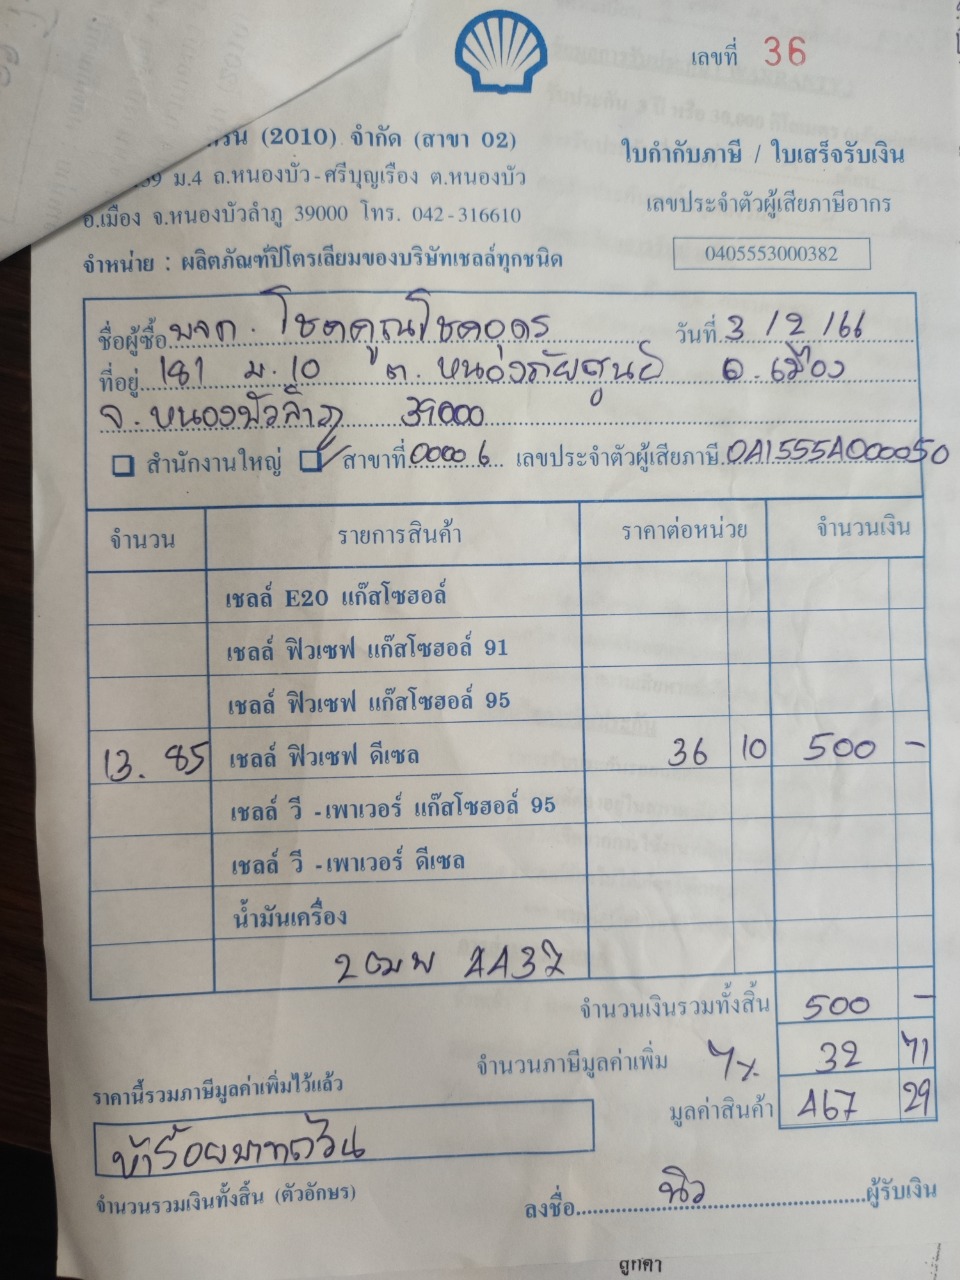 เลขที่ 36
(2010) จำกัด (สาขา 02)
ใบกำกับภาษี / ใบเสร็จรับเงิน
ม.4 ถ.หนองบัว-ศรีบุญเรือง ต.หนองบัว
เลขประจำตัวผู้เสียภาษีอากร
อ.เมือง จ.หนองบัวลำภู 39000 โทร. 042-316610
0405553000382
จำหน่าย : ผลิตภัณฑ์ปิโตรเลียมของบริษัทเชลล์ทุกชนิด
ชื่อผู้ซื้อ บจก. โชคคูณโชคอุดร วันที่ 3/2/66
ที่อยู่ 181 ม.10 ต.หนองภัยศูนย์ อ.เมือง
จ.หนองบัวลำภู 39000
สำนักงานใหญ่ สาขาที่ 00006 เลขประจำตัวผู้เสียภาษี 0415554000050
จำนวน รายการสินค้า ราคาต่อหน่วย จำนวนเงิน
เชลล์ E20 แก๊สโซฮอล์
เชลล์ ฟิวเซฟ แก๊สโซฮอล์ 91
เชลล์ ฟิวเซฟ แก๊สโซฮอล์ 95
13.85 เชลล์ ฟิวเซฟ ดีเซล 36 10 500 -
เชลล์ วี -เพาเวอร์ แก๊สโซฮอล์ 95
เชลล์ วี -เพาเวอร์ ดีเซล
น้ำมันเครื่อง
4437
จำนวนเงินรวมทั้งสิ้น 500 -
จำนวนภาษีมูลค่าเพิ่ม 7% 32 71
ราคานี้รวมภาษีมูลค่าเพิ่มไว้แล้ว
มูลค่าสินค้า 467 29
ห้าร้อยบาทถ้วน
จำนวนรวมเงินทั้งสิ้น (ตัวอักษร)
ลงชื่อ นิว ผู้รับเงิน
ลูกค้า